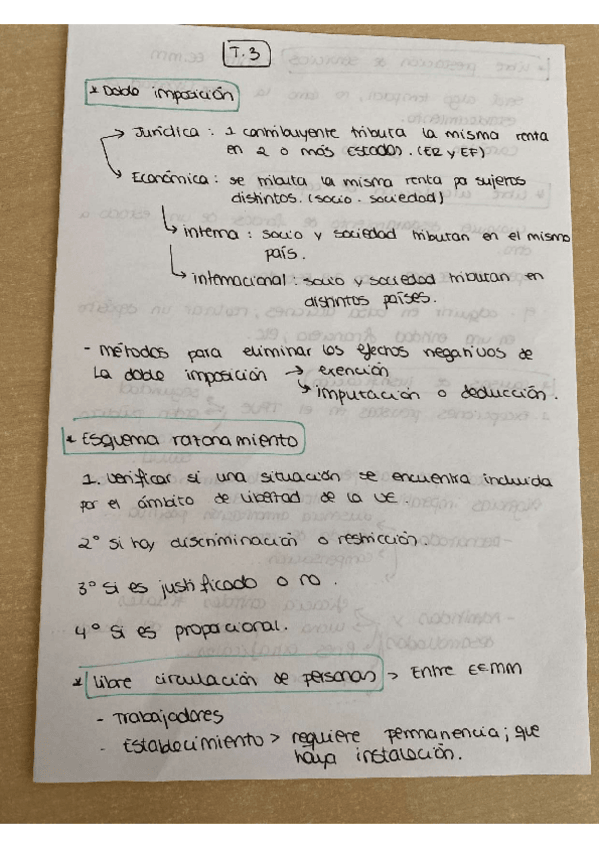 T.3
* Doble imposición
→ Jurídica : 1 contribuyente tributa la misma renta
en 2 o más estados. (ER y EF)
→ Económica : se tributa la misma renta por sujetos
distintos. (socio - sociedad)
↳ interna : socio y sociedad tributan en el mismo
país.
↳ internacional : socio y sociedad tributan en
distintos países.
- métodos para eliminar los efectos negativos de
la doble imposición → exención
↳ imputación o deducción.
* Esquema razonamiento
1. verificar si una situación se encuentra incluida
por el ámbito de libertad de la UE.
2º si hay discriminación o restricción.
3º si es justificado o no.
4º si es proporcional.
* Libre circulación de personas > Entre EEMM
- Trabajadores
- Establecimiento > requiere permanencia; que
haya instalación.